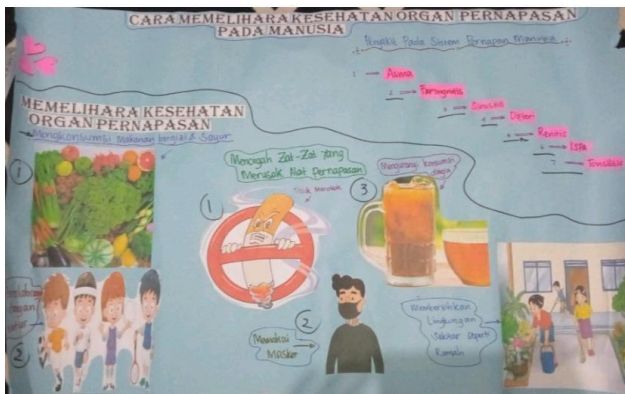 CARA MEMELIHARA KESEHATAN ORGAN PERNAPASAN
PADA MANUSIA
Penyakit Pada Sistem Pernapasan Manusia
1 → Asma
2 → Faringitis
3 → Sinusitis
4 → Difteri
5 → Renitis
6 → ISPA
7 → Tonsilitis
MEMELIHARA KESEHATAN
ORGAN PERNAPASAN
Mengkonsumsi Makanan bergizi & Sayur
1
2
Mencegah Zat-Zat yang
Merusak Alat Pernapasan
1
Tidak Merokok
2
Memakai
Masker
3
Mengurangi konsumsi
Membersihkan
Lingkungan
Sekitar seperti
Rumah